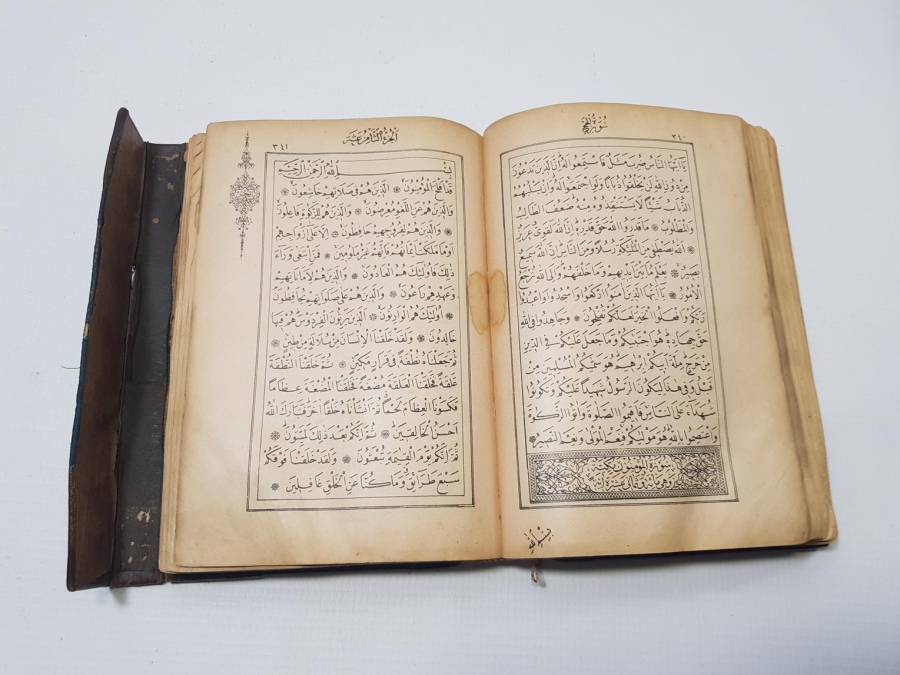 سُورَةُ الْحَجِّ
٣٤٠
يَا اَيُّهَا النَّاسُ ضُرِبَ مَثَلٌ فَاسْتَمِعُوا لَهُ اِنَّ الَّذِينَ تَدْعُونَ
مِنْ دُونِ اللهِ لَنْ يَخْلُقُوا ذُبَابًا وَلَوِ اجْتَمَعُوا لَهُ وَاِنْ يَسْلُبْهُمُ
الذُّبَابُ شَيْئًا لَا يَسْتَنْقِذُوهُ مِنْهُ ضَعُفَ الطَّالِبُ
وَالْمَطْلُوبُ ۞ مَا قَدَرُوا اللهَ حَقَّ قَدْرِهِ اِنَّ اللهَ لَقَوِيٌّ عَزِيزٌ
۞ اَللهُ يَصْطَفِي مِنَ الْمَلٰئِكَةِ رُسُلًا وَمِنَ النَّاسِ اِنَّ اللهَ سَمِيعٌ
بَصِيرٌ ۞ يَعْلَمُ مَا بَيْنَ اَيْدِيهِمْ وَمَا خَلْفَهُمْ وَاِلَى اللهِ تُرْجَعُ
الْاُمُورُ ۞ يَا اَيُّهَا الَّذِينَ اٰمَنُوا ارْكَعُوا وَاسْجُدُوا وَاعْبُدُوا
رَبَّكُمْ وَافْعَلُوا الْخَيْرَ لَعَلَّكُمْ تُفْلِحُونَ ۞ وَجَاهِدُوا فِي اللهِ
حَقَّ جِهَادِهِ هُوَ اجْتَبٰيكُمْ وَمَا جَعَلَ عَلَيْكُمْ فِي الدِّينِ
مِنْ حَرَجٍ مِلَّةَ اَبِيكُمْ اِبْرٰهِيمَ هُوَ سَمّٰيكُمُ الْمُسْلِمِينَ مِنْ
قَبْلُ وَفِي هٰذَا لِيَكُونَ الرَّسُولُ شَهِيدًا عَلَيْكُمْ وَتَكُونُوا
شُهَدَاءَ عَلَى النَّاسِ فَاَقِيمُوا الصَّلٰوةَ وَاٰتُوا الزَّكٰوةَ
وَاعْتَصِمُوا بِاللهِ هُوَ مَوْلٰيكُمْ فَنِعْمَ الْمَوْلٰى وَنِعْمَ النَّصِيرُ ۞
سُورَةُ الْمُؤْمِنُونَ مَكِّيَّةٌ
وَهِيَ مِائَةٌ وَثَمَانِيَ عَشْرَةَ اٰيَةً
بِسْمِ اللهِ
اَلْجُزْءُ الثَّامِنُ عَشَرَ
٣٤١
بِسْمِ اللهِ الرَّحْمٰنِ الرَّحِيمِ
قَدْ اَفْلَحَ الْمُؤْمِنُونَ ۞ اَلَّذِينَ هُمْ فِي صَلَاتِهِمْ خَاشِعُونَ ۞
وَالَّذِينَ هُمْ عَنِ اللَّغْوِ مُعْرِضُونَ ۞ وَالَّذِينَ هُمْ لِلزَّكٰوةِ فَاعِلُونَ
۞ وَالَّذِينَ هُمْ لِفُرُوجِهِمْ حَافِظُونَ ۞ اِلَّا عَلٰى اَزْوَاجِهِمْ
اَوْ مَا مَلَكَتْ اَيْمَانُهُمْ فَاِنَّهُمْ غَيْرُ مَلُومِينَ ۞ فَمَنِ ابْتَغٰى وَرَاءَ
ذٰلِكَ فَاُولٰئِكَ هُمُ الْعَادُونَ ۞ وَالَّذِينَ هُمْ لِاَمَانَاتِهِمْ
وَعَهْدِهِمْ رَاعُونَ ۞ وَالَّذِينَ هُمْ عَلٰى صَلَوَاتِهِمْ يُحَافِظُونَ
۞ اُولٰئِكَ هُمُ الْوَارِثُونَ ۞ اَلَّذِينَ يَرِثُونَ الْفِرْدَوْسَ هُمْ فِيهَا
خَالِدُونَ ۞ وَلَقَدْ خَلَقْنَا الْاِنْسَانَ مِنْ سُلَالَةٍ مِنْ طِينٍ ۞
ثُمَّ جَعَلْنَاهُ نُطْفَةً فِي قَرَارٍ مَكِينٍ ۞ ثُمَّ خَلَقْنَا النُّطْفَةَ
عَلَقَةً فَخَلَقْنَا الْعَلَقَةَ مُضْغَةً فَخَلَقْنَا الْمُضْغَةَ عِظَامًا
فَكَسَوْنَا الْعِظَامَ لَحْمًا ثُمَّ اَنْشَاْنَاهُ خَلْقًا اٰخَرَ فَتَبَارَكَ اللهُ
اَحْسَنُ الْخَالِقِينَ ۞ ثُمَّ اِنَّكُمْ بَعْدَ ذٰلِكَ لَمَيِّتُونَ ۞
ثُمَّ اِنَّكُمْ يَوْمَ الْقِيٰمَةِ تُبْعَثُونَ ۞ وَلَقَدْ خَلَقْنَا فَوْقَكُمْ
سَبْعَ طَرَائِقَ وَمَا كُنَّا عَنِ الْخَلْقِ غَافِلِينَ ۞